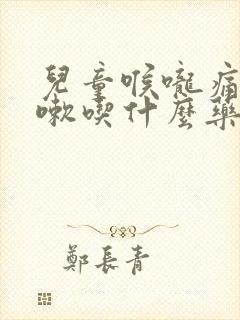 兒童喉嚨痛
嗽喫什麼藥
鄭長青